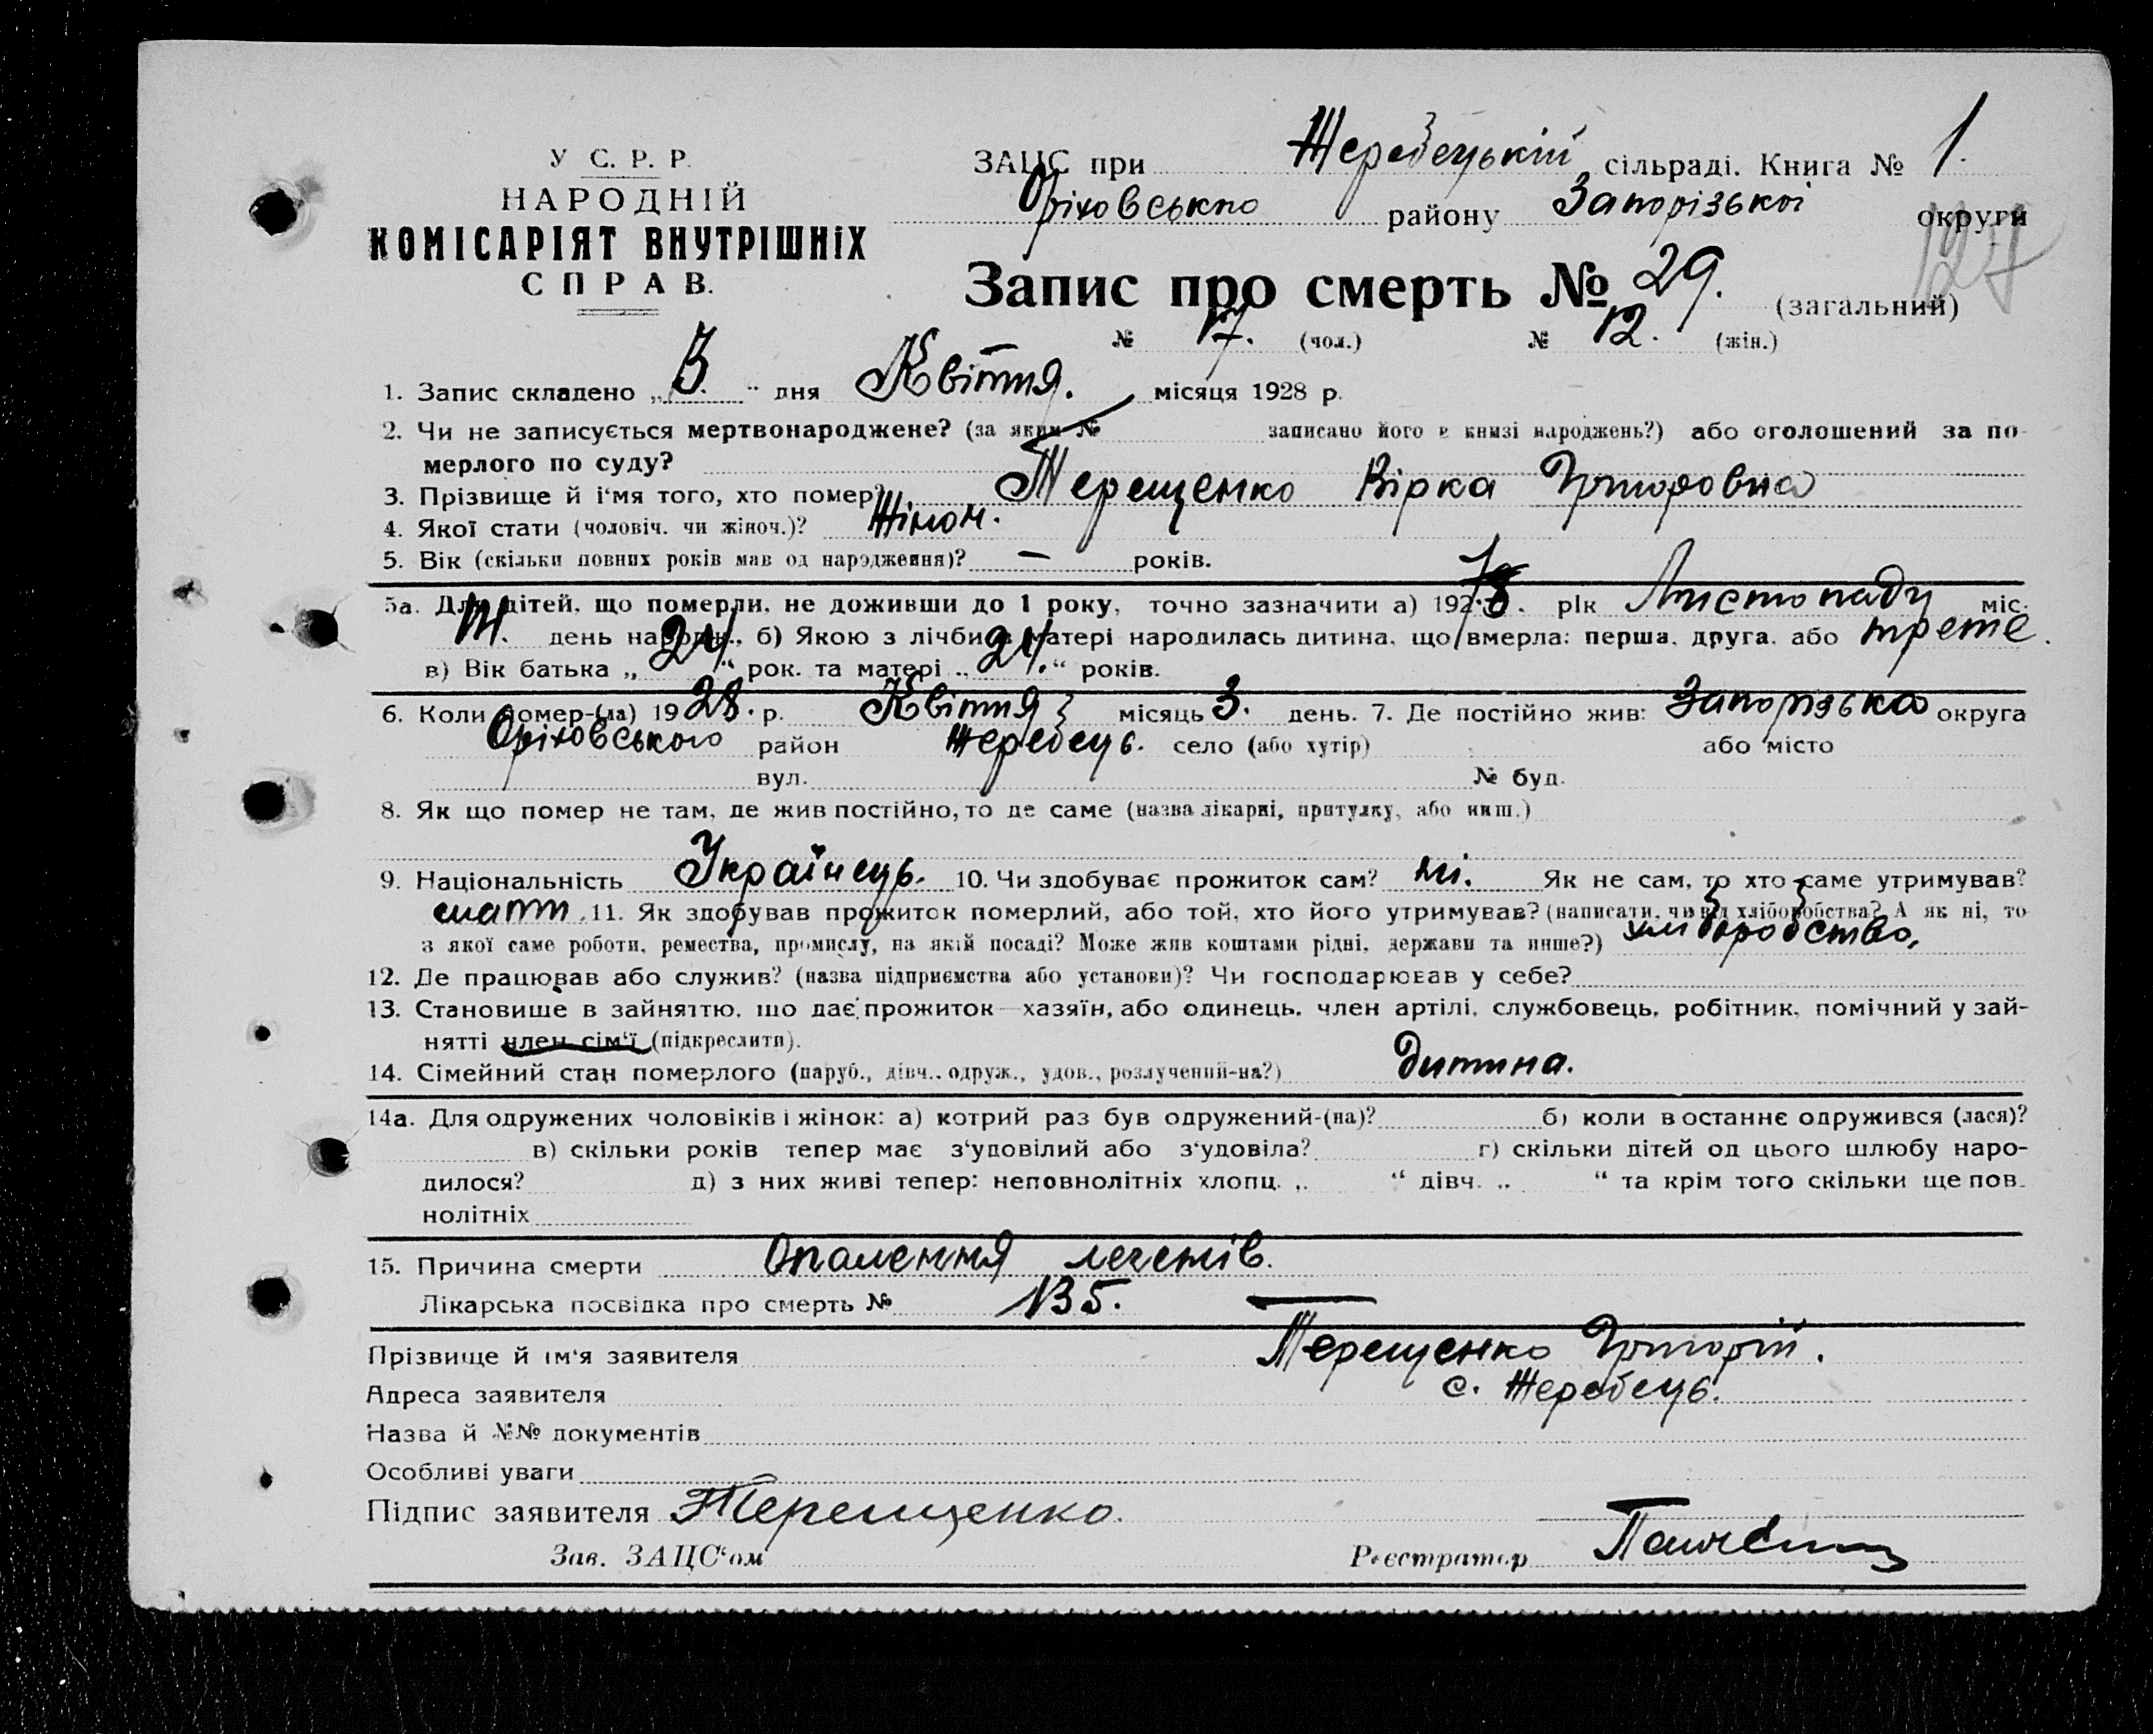 У С. Р. Р.
НАРОДНІЙ
КОМІСАРІЯТ ВНУТРІШНІХ
СПРАВ.
ЗАЦС при Жеребецькій сільраді. Книга № 1.
Оріховського району Запорізької округи
127
Запис про смерть № 29. (загальний)
№ 17. (чол.) № 12. (жін.)
1. Запис складено „3.“ дня Квітня. місяця 1928 р.
2. Чи не записується мертвонароджене? (за яким № записано його в книзі народжень?) або оголошений за по-
мерлого по суду?
3. Прізвище й і‘мя того, хто помер? Терещенко Вірка Григоровна
4. Якої стати (чоловіч. чи жіноч.)? Жіноч.
5. Вік (скільки повних років мав од народження)? — років.
5а. Для дітей, що померли, не доживши до 1 року, точно зазначити а) 1927 рік Листопаду міс.
день народж., б) Якою з лічби в матері народилась дитина, що вмерла: перша, друга, або трете.
в) Вік батька „24“ рок. та матері „24.“ років.
6. Коли помер-(ла) 1928. р. Квітня місяць 3. день. 7. Де постійно жив: Запорізька округа
Оріховського район Жеребець. село (або хутір) або місто
вул. № буд.
8. Як що помер не там, де жив постійно, то де саме (назва лікарні, притулку, або инш.)
9. Національність Українець. 10. Чи здобуває прожиток сам? ні. Як не сам, то хто саме утримував?
мати. 11. Як здобував прожиток померлий, або той, хто його утримував? (написати, чи від хліборобства? А як ні, то
з якої саме роботи, ремества, промислу, на якій посаді? Може жив коштами рідні, держави та инше?) хліборобство.
12. Де працював або служив? (назва підприємства або установи)? Чи господарював у себе?
13. Становище в зайняттю, що дає прожиток—хазяїн, або одинець, член артілі, службовець, робітник, помічний у зай-
нятті член сім‘ї (підкреслити).
14. Сімейний стан померлого (паруб., дівч., одруж., удов., розлучений-на?) Дитина.
14а. Для одружених чоловіків і жінок: а) котрий раз був одружений-(на)? б) коли востаннє одружився (лася)?
в) скільки років тепер має з‘удовілий або з‘удовіла? г) скільки дітей од цього шлюбу наро-
дилося? д) з них живі тепер: неповнолітніх хлопц. „ “ дівч. „ “ та крім того скільки ще пов-
нолітніх
15. Причина смерти Опалення легенів.
Лікарська посвідка про смерть № 135. —
Прізвище й ім‘я заявителя Терещенко Григорій.
Адреса заявителя с. Жеребець.
Назва й №№ документів
Особливі уваги
Підпис заявителя Терещенко.
Зав. ЗАЦС‘ом Реєстратор